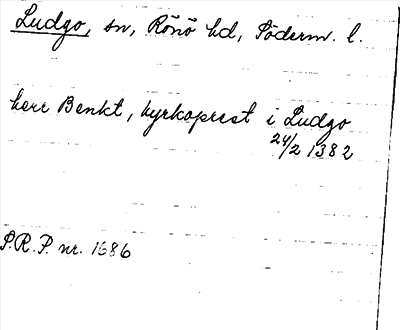 Ludgo, sn, Rönö hd, Söderm. l.
herr Benkt, kyrkoprest i Ludgo
24/2 1382
S.R.P. nr. 1686